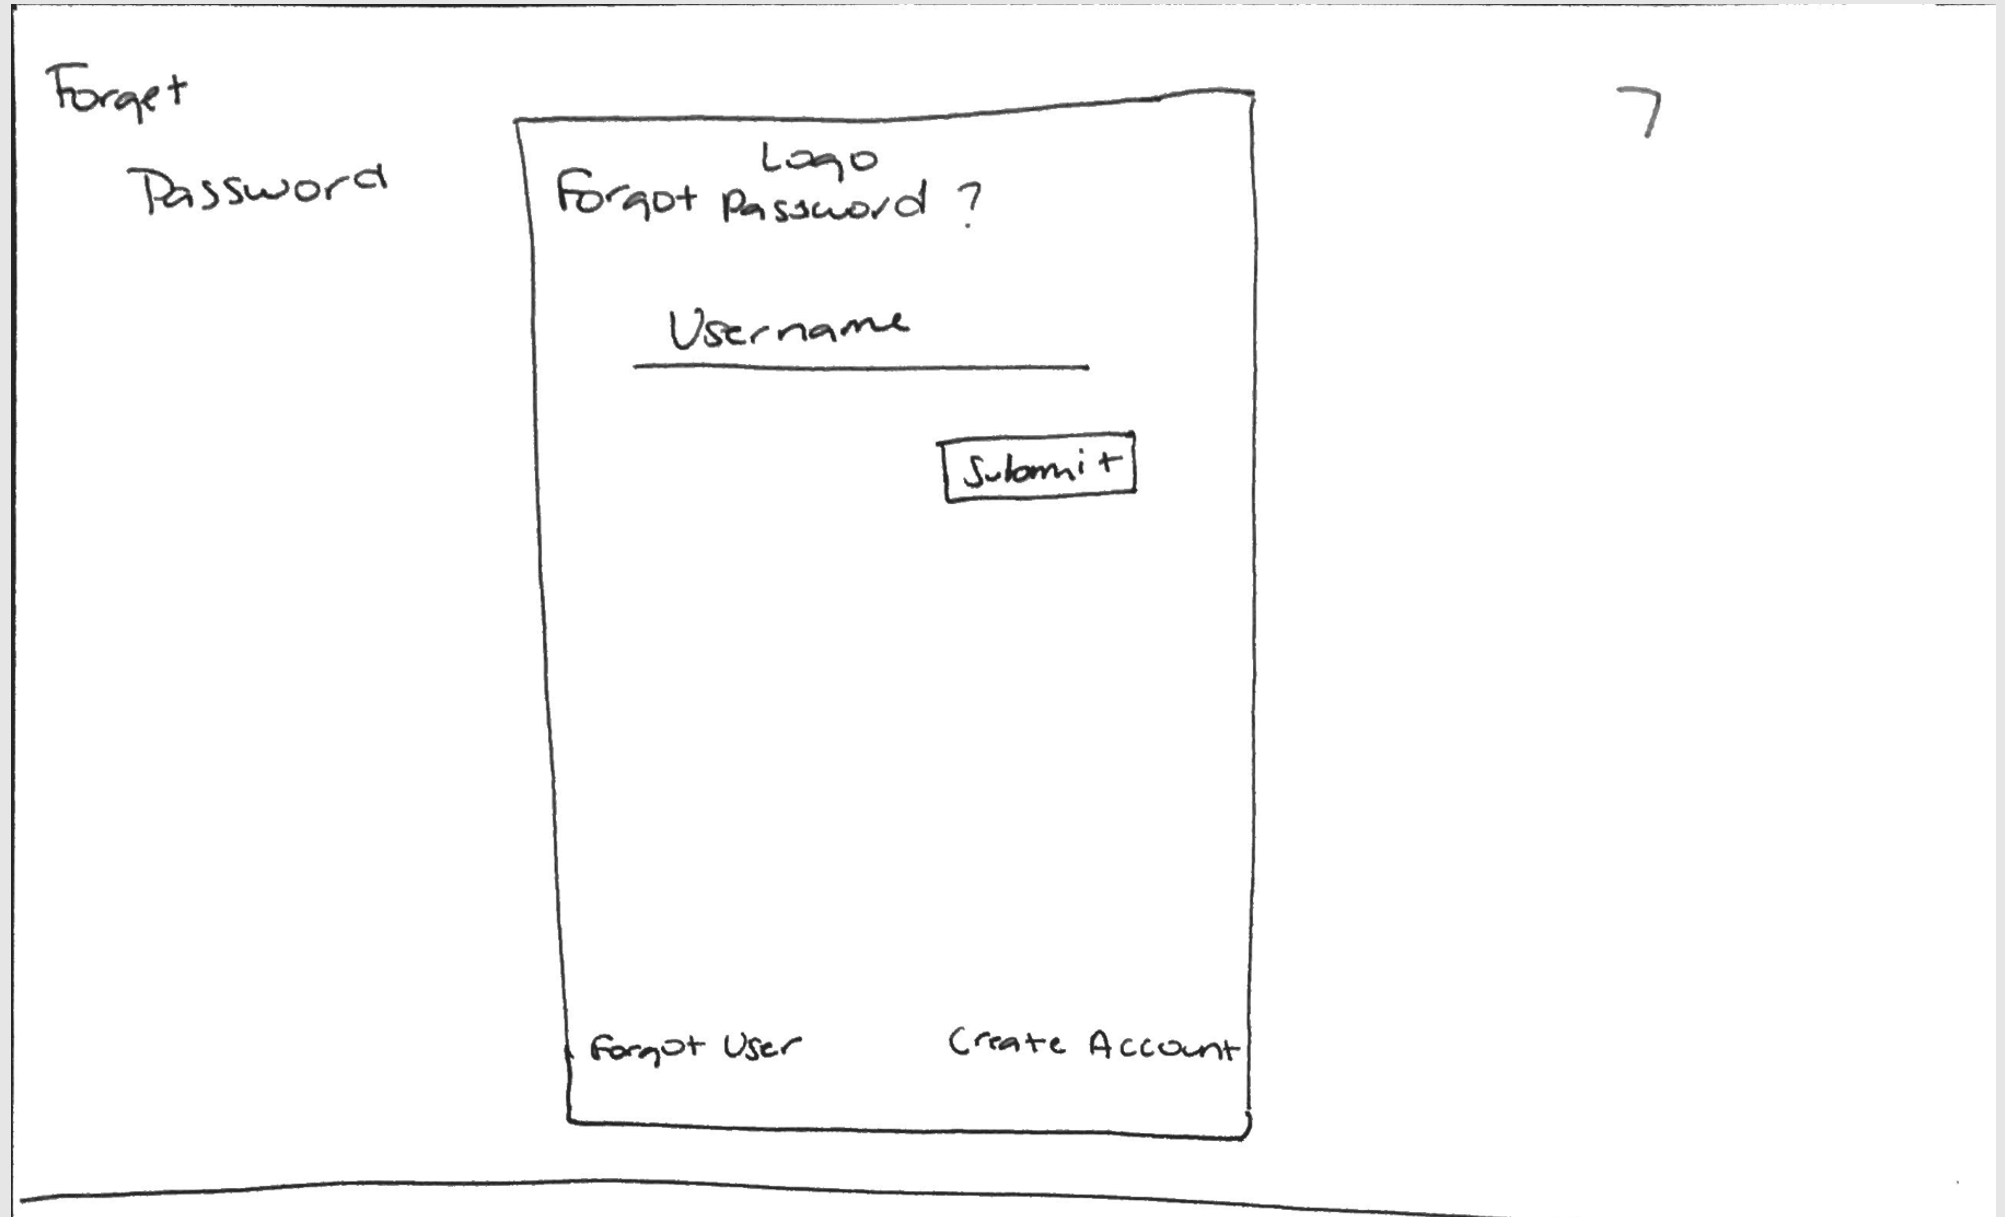 Forget
Password
7
Logo
Forgot Password ?
Username
Submit
Forgot User
Create Account